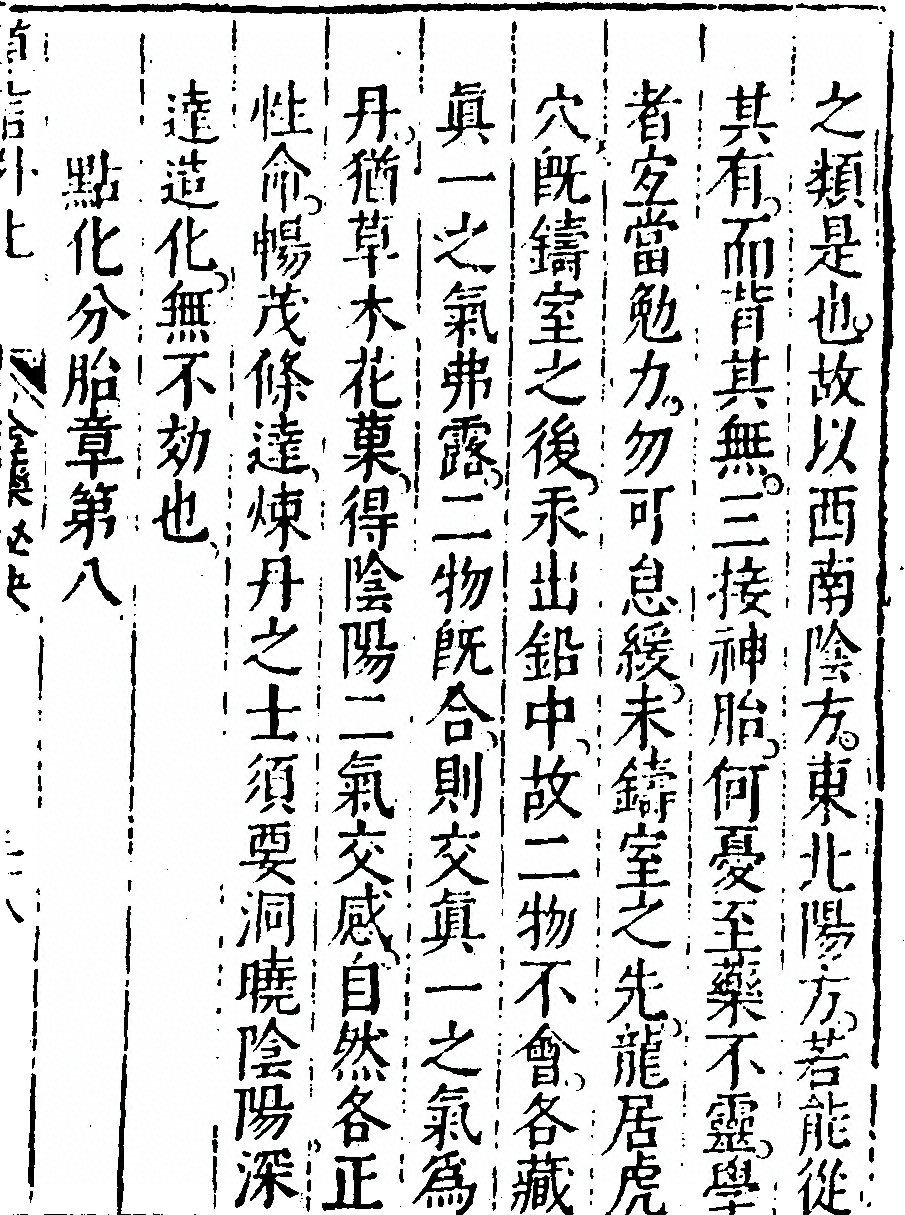 之類是也故以西南陰方。東北陽方。若能從
其有。而背其無。三接神胎。何憂至藥不靈。學
者宜當勉力。勿可息緩。未鑄室之先。龍居虎
穴。旣鑄室之後。汞出鉛中。故二物不會。各藏
眞一之氣弗露。二物旣合。則交眞一之氣爲
丹。猶草木花菓。得陰陽二氣交感。自然各正
性命。暢茂條達。煉丹之士須要洞曉陰陽深
達造化。無不効也。
點化分胎章第八